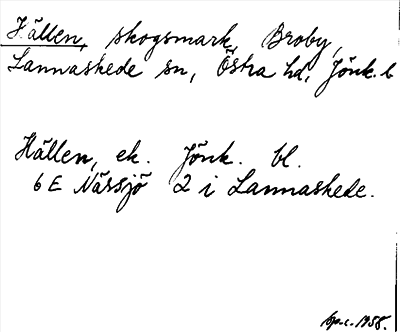 Hällen, skogsmark, Broby,
Lannaskede sn, Östra hd, Jönk. l
Hällen, ek. Jönk. bl.
6 E Nässjö 2 i Lannaskede.
1958.